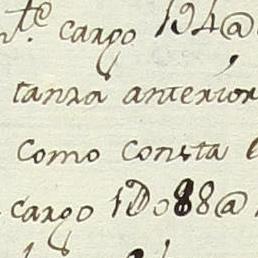 cargo 194@
tanza anterior
como consta
cargo 1D088@